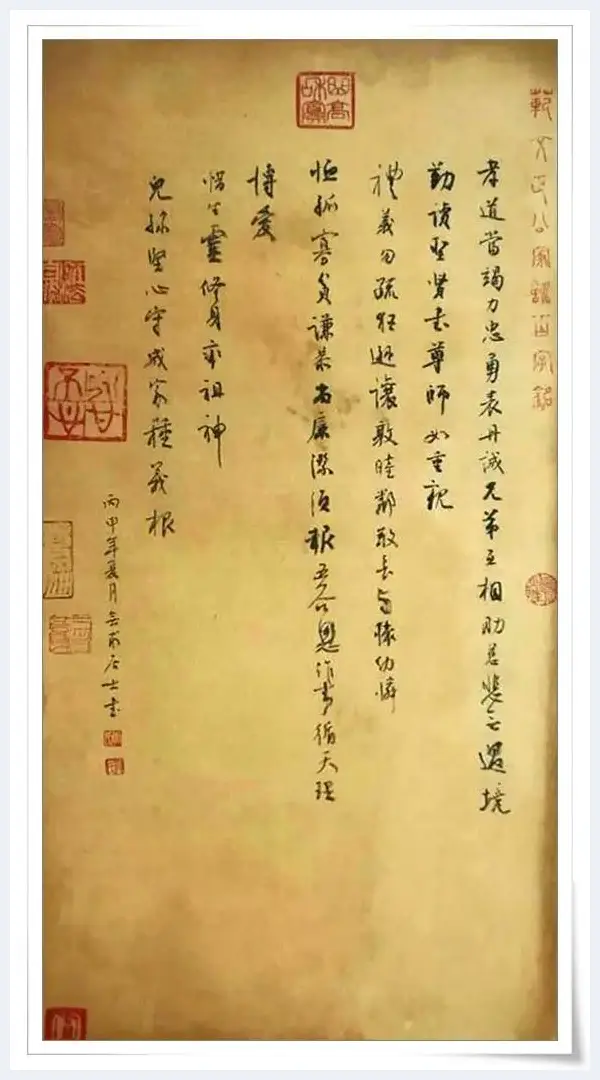 範文正公家訓百字銘
孝道當竭力忠勇表丹誠兄弟互相助慈悲无過境
勤讀聖賢書尊師如重親
禮義勿疏狂遜讓敦睦鄰敬長与懷幼憐
恤孤寡貧謙恭尚廉潔須報五谷恩作事循天理
博愛
惜生靈修身率祖神
兒孫堅心守成家種義根
丙申年夏月居士書